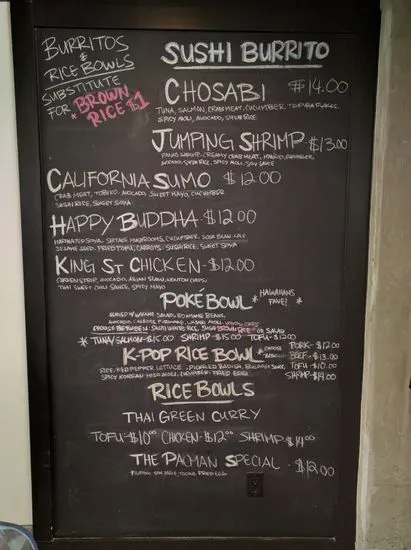 BURRITOS
&
RICE BOWLS
SUBSTITUTE
FOR * BROWN
RICE $1
SUSHI BURRITO
CHOSABI $14.00
TUNA, SALMON, CRAB MEAT, CUCUMBER, TEMPURA FLAKES,
SPICY AIOLI, AVOCADO, SUSHI RICE
JUMPING SHRIMP - $13.00
PANKO SHRIMP, CREAMY CRAB MEAT, MANGO, CUCUMBER,
AVOCADO, SUSHI RICE, SPICY AIOLI, SOY SAUCE
CALIFORNIA SUMO $12.00
CRAB MEAT, TOBIKO, AVOCADO, SWEET MAYO, CUCUMBER
SUSHI RICE, SWEET SOYA
HAPPY BUDDHA - $12.00
MARINATED SOYA, SHITAKE MUSHROOMS, CUCUMBER, SOYA BEAN, KALE
SESAME SEED, FRIED TOFU, CARROTS, SUSHI RICE, SWEET SOYA
KING ST CHICKEN - $12.00
CHICKEN STRIP, AVOCADO, ASIAN SLAW, WONTON CHIPS
THAI SWEET CHILI SAUCE, SPICY MAYO
POKÉ BOWL * HAWAIIANS FAVE! *
SERVED W/ WAKAME SALAD, EDAMAME BEANS,
AVOCADO, CARROTS, WASABI AIOLI, WONTON CHIPS
CHOOSE BETWEEN: SUSHI WHITE RICE, SUSHI BROWN RICE OR SALAD
* TUNA/SALMON - $15.00 SHRIMP - $15.00 TOFU - $12.00
K-POP RICE BOWL * CHOOSE BETWEEN
PORK - $12.00
BEEF - $13.00
TOFU - $10.00
SHRIMP - $14.00
RICE, RED PEPPER, LETTUCE, PICKLED RADISH, BULGOGI SAUCE
SPICY KOREAN MISO AIOLI, CUCUMBER, FRIED EGG
RICE BOWLS
THAI GREEN CURRY
TOFU - $10.00 CHICKEN - $12.00 SHRIMP - $14.00
THE PACMAN SPECIAL - $12.00
FILIPINO FRIED EGG